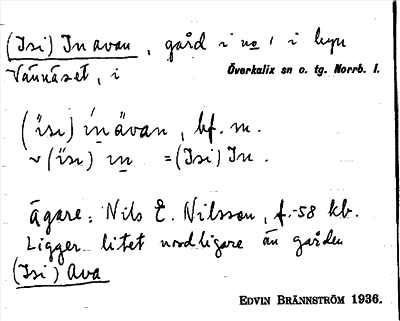 (Isi) Inavan, gård i no 1 i byn
Vännäset, i Överkalix sn o. tg. Norrb. l.
(ísı) ínävan, bf. m.
~ (ísı) ın = (Isi) In.
ägare: Nils E. Nilsson, f. -58 kb.
Ligger litet nordligare än gården
(Isi) Ava
EDVIN BRÄNNSTRÖM 1936.